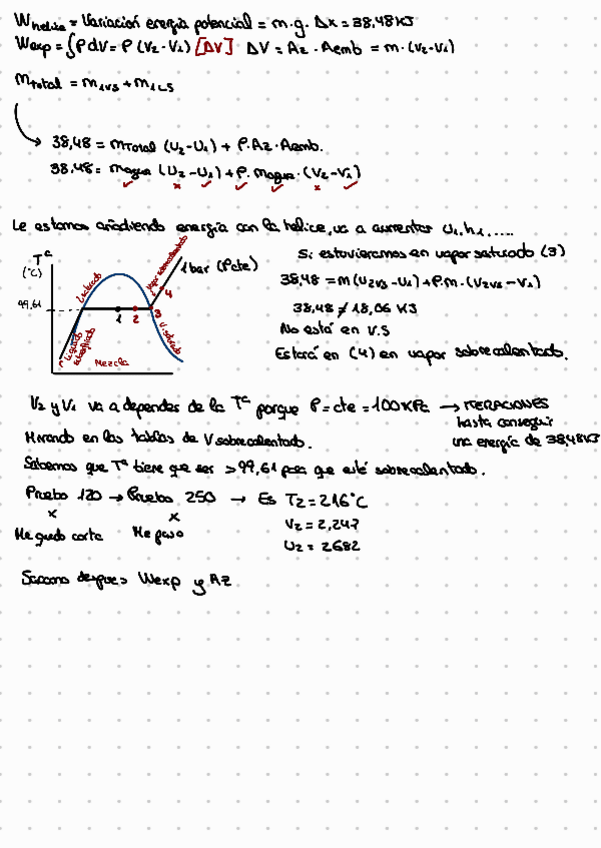 Whelice = Variación energía potencial = m.g. Δx = 38,48 KJ
Wexp = ∫PdV = P (V2 - V1) [ΔV] ΔV = Az · Aemb = m · (v2-v1)
mtotal = m1VS + m1LS
38,48 = mTotal (U2 - U1) + P. Az · Aemb.
38,48 = magua (U2 - U1) + P. magua · (V2 - V1)
Le estamos añadiendo energía con la hélice, va a aumentar u1, h1, .....
Tª
(°C)
99,61
Liq. saturado
Vapor sobrecalentado
1 bar (Pcte)
4
1 2 3
V. saturado
Líquido
Mezcla
Si estuvieramos en vapor saturado (3)
38,48 = m(U2VS - U1) + P.m. (V2VS - V1)
38,48 ≠ 18,06 KJ
No está en V.S
Estará en (4) en vapor sobrecalentado.
V2 y V1 va a depender de la Tª porque P = cte = 100 KPa → ITERACIONES
hasta conseguir
una energía de 38,48 KJ
Mirando en las tablas de V sobrecalentado.
Sabemos que Tª tiene que ser > 99,61 para que esté sobrecalentado.
Pruebo 120 → Pruebo 250 → Es T2 = 216°C
x x
Me quedo corta Me paso
V2 = 2,247
U2 = 2682
Sacamos después Wexp y Az